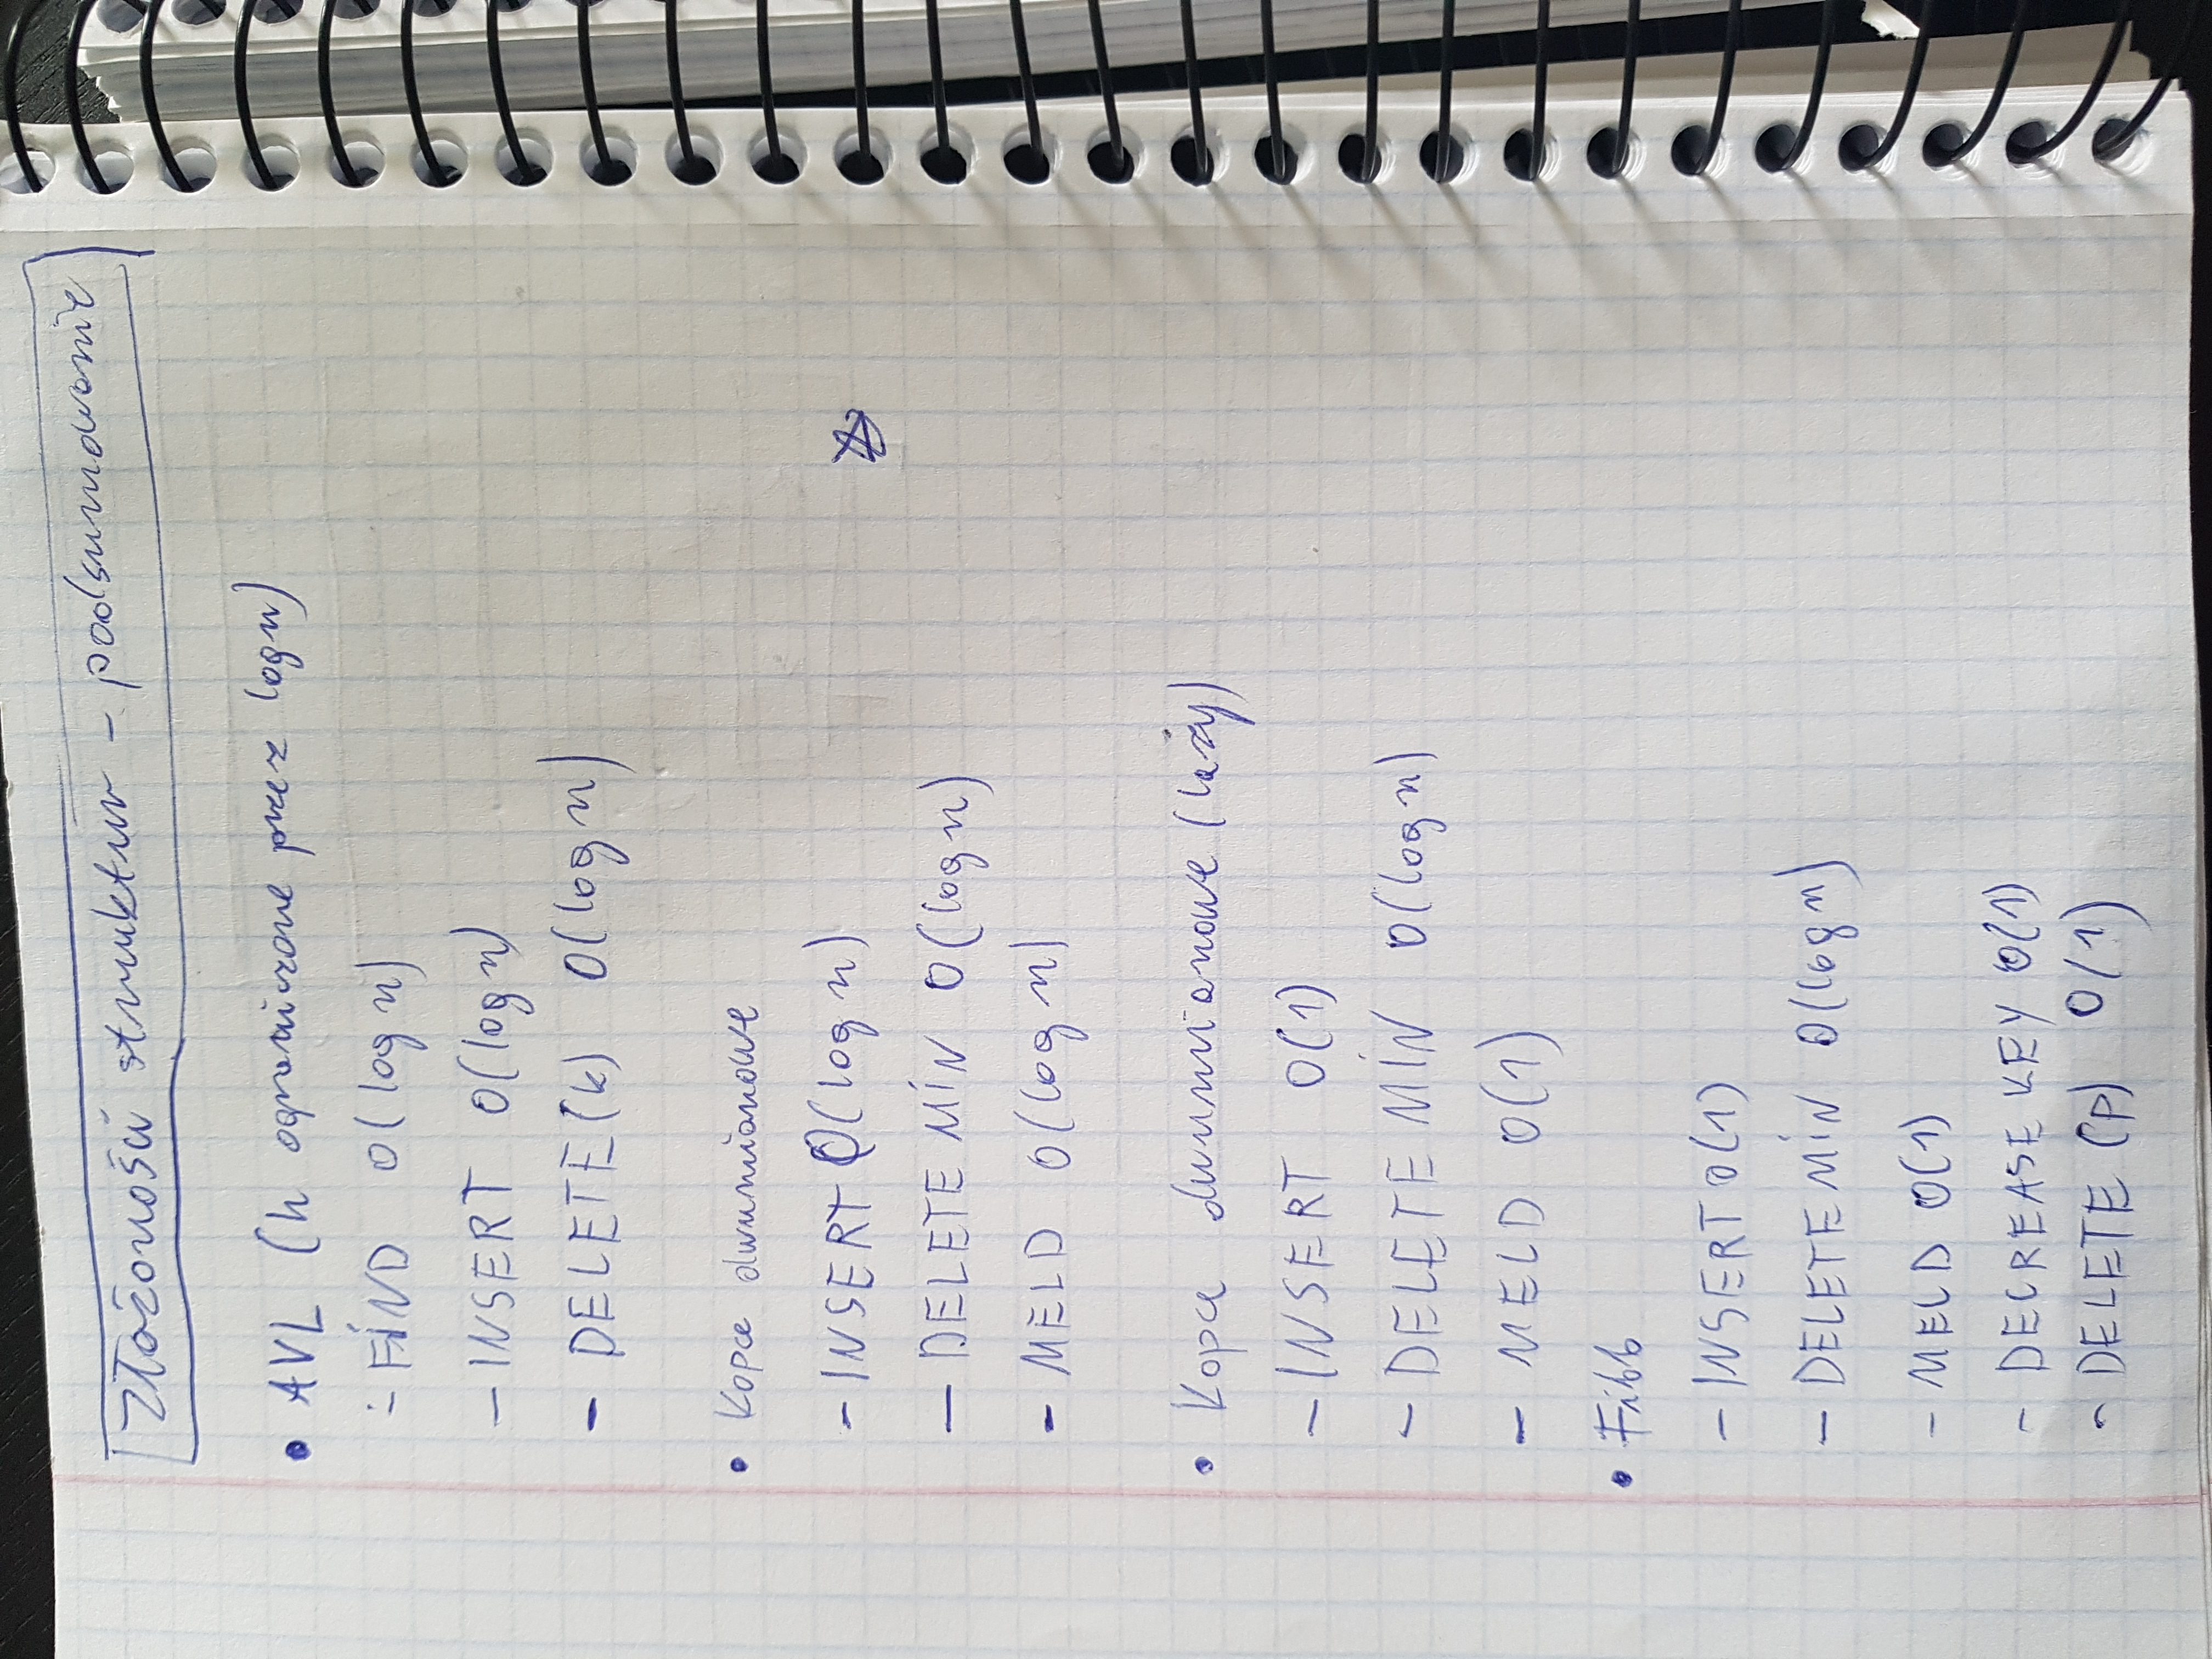 Złożoności struktur - podsumowanie
• AVL (h ograniczone przez log n)
- FIND O(log n)
- INSERT O(log n)
- DELETE(k) O(log n)
• Kopce dwumianowe
- INSERT O(log n)
- DELETE MIN O(log n)
- MELD O(log n)
• Kopce dwumianowe (lazy)
- INSERT O(1)
- DELETE MIN O(log n)
- MELD O(1)
• Fibb
- INSERT O(1)
- DELETE MIN O(log n)
- MELD O(1)
- DECREASE KEY O(1)
- DELETE (p) O(1)